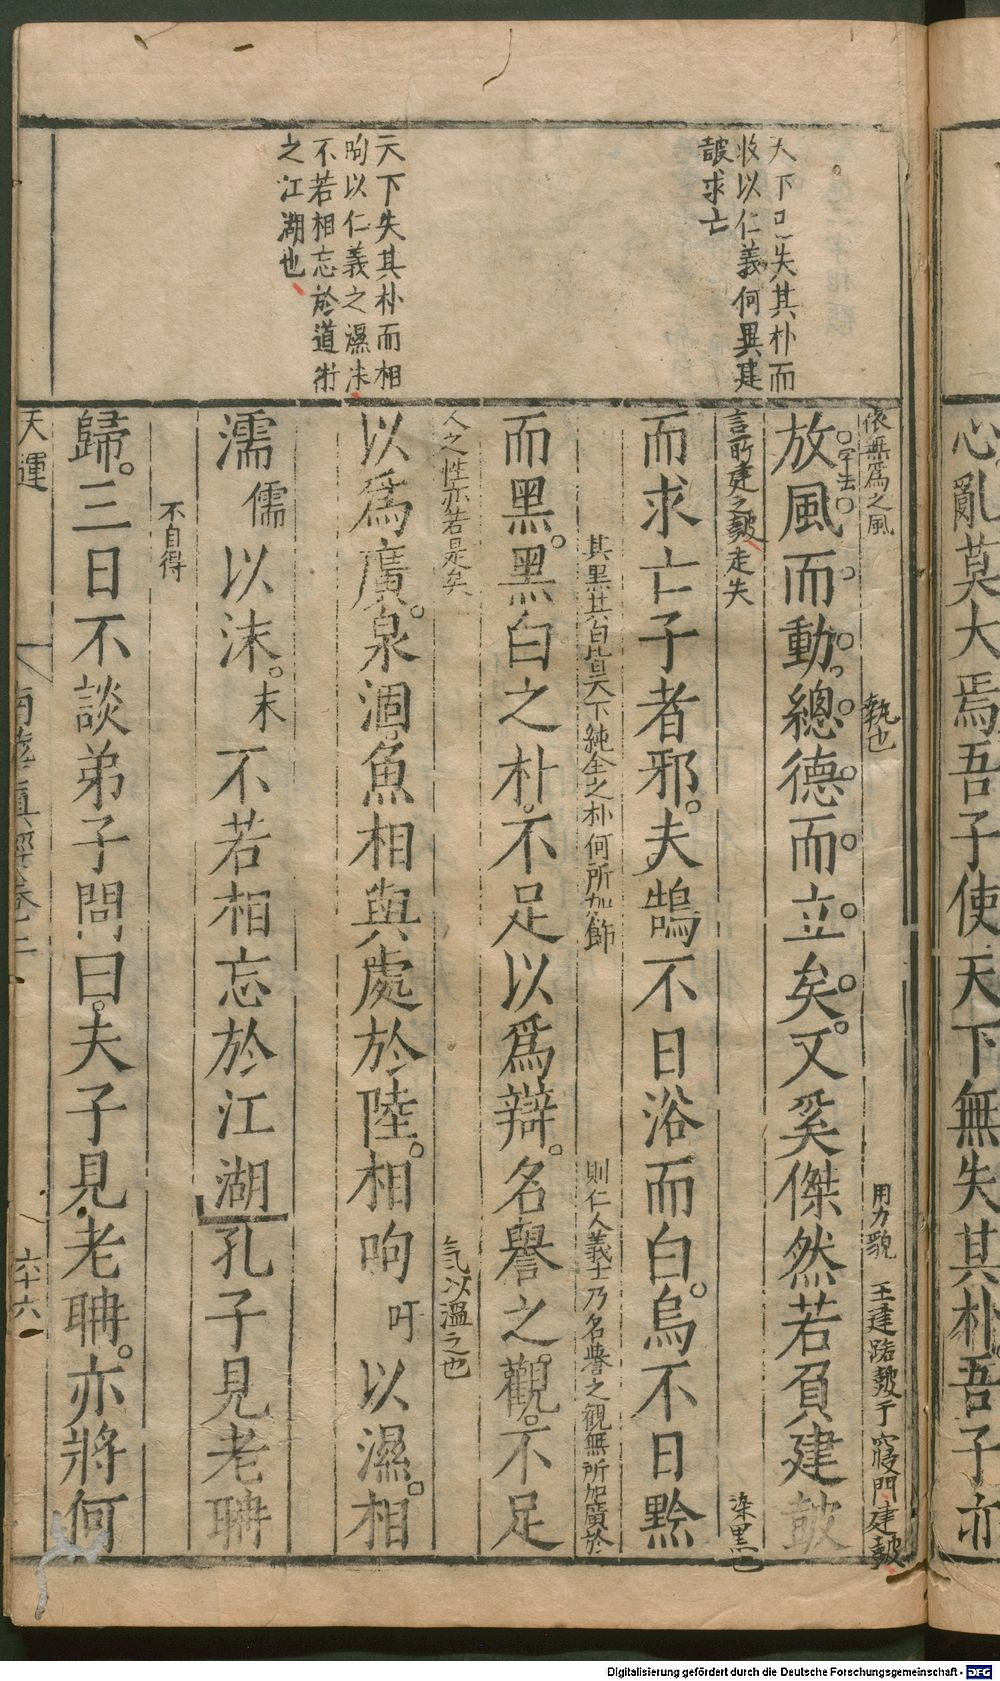 心亂莫大焉吾子使天下無失其朴吾子亦
天下已失其朴而
收以仁義何異建
皷求亡
天下失其朴而相
呴以仁義之濕沫
不若相忘於道術
之江湖也
依無爲之風
執也
用力貌
王建路皷于寢門建皷
字法
放風而動總德而立矣又奚傑然若負建皷
言所建之皷走失
染黑也
而求亡子者邪夫鵠不日浴而白烏不日黔
其黑其白皆天下純全之朴何所加飾
則仁人義士乃名譽之観無所加廣於
而黑黑白之朴不足以爲辯名譽之觀不足
人之性亦若是矣
気以溫之也
以爲廣泉涸魚相與處於陸相呴吁以濕相
濡儒以沫末不若相忘於江湖孔子見老聃
不自得
歸三日不談弟子問曰夫子見老聃亦將何
天運
南華真經卷
六十六
Digitalisierung gefördert durch die Deutsche Forschungsgemeinschaft - DFG